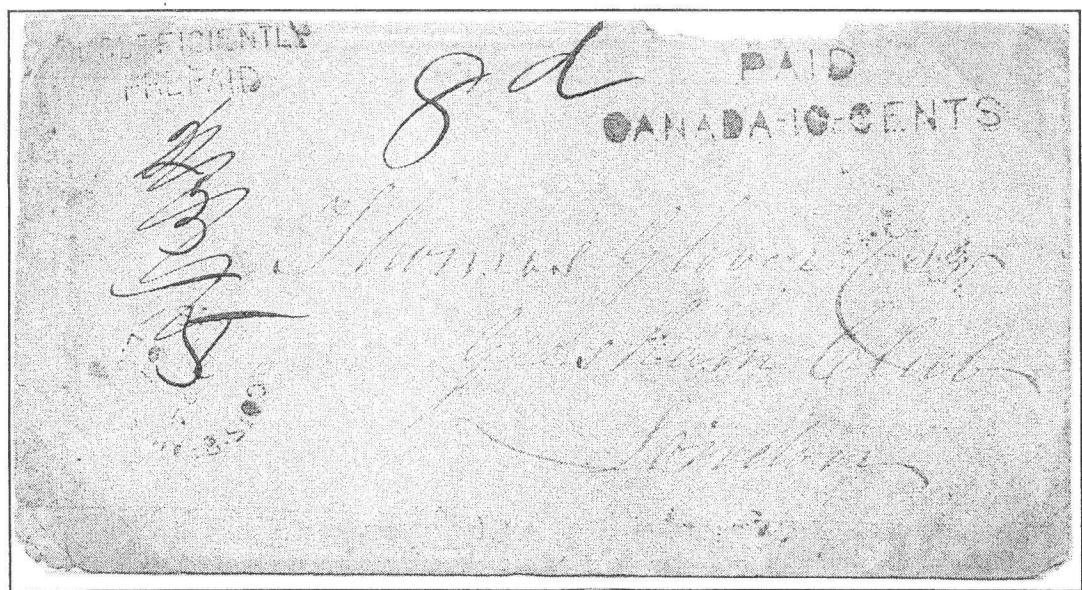 INSUFFICIENTLY
PREPAID
8d
PAID
CANADA-10-CENTS
3
5
Thomas Glover Esq
Club
London